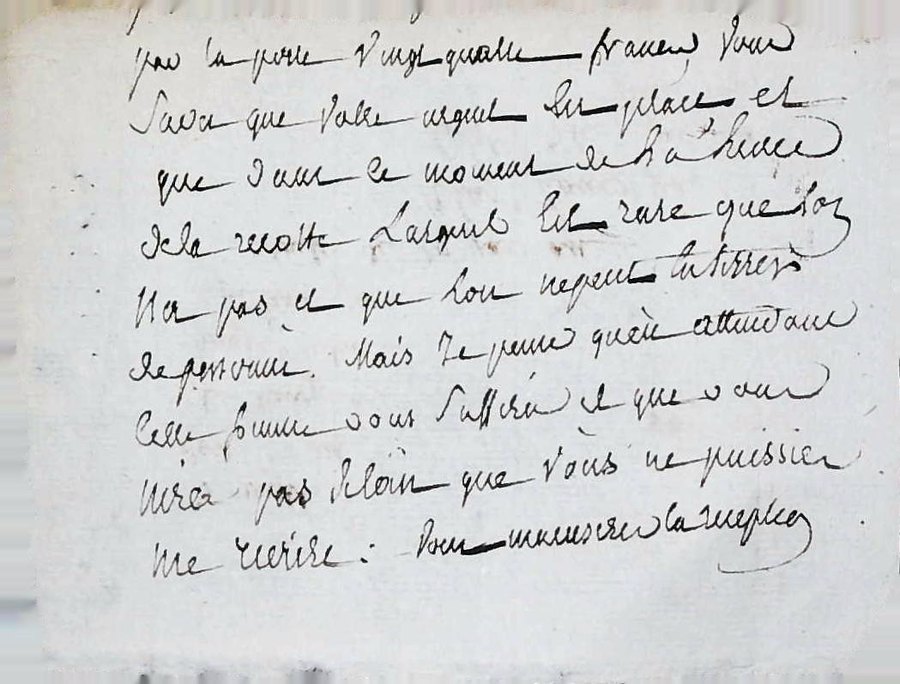 par la poste vingt quatre francs, vous
savez que votre argent est placé et
que dans ce moment de
de la recolte Largent est rare que Lon
Na pas et que Lon nepeut
de personne. Mais Je pense qu'en attendant
Cette somme vous suffira et que vous
Nirez pas si loin que vous ne puissiez
me recrire : vous la